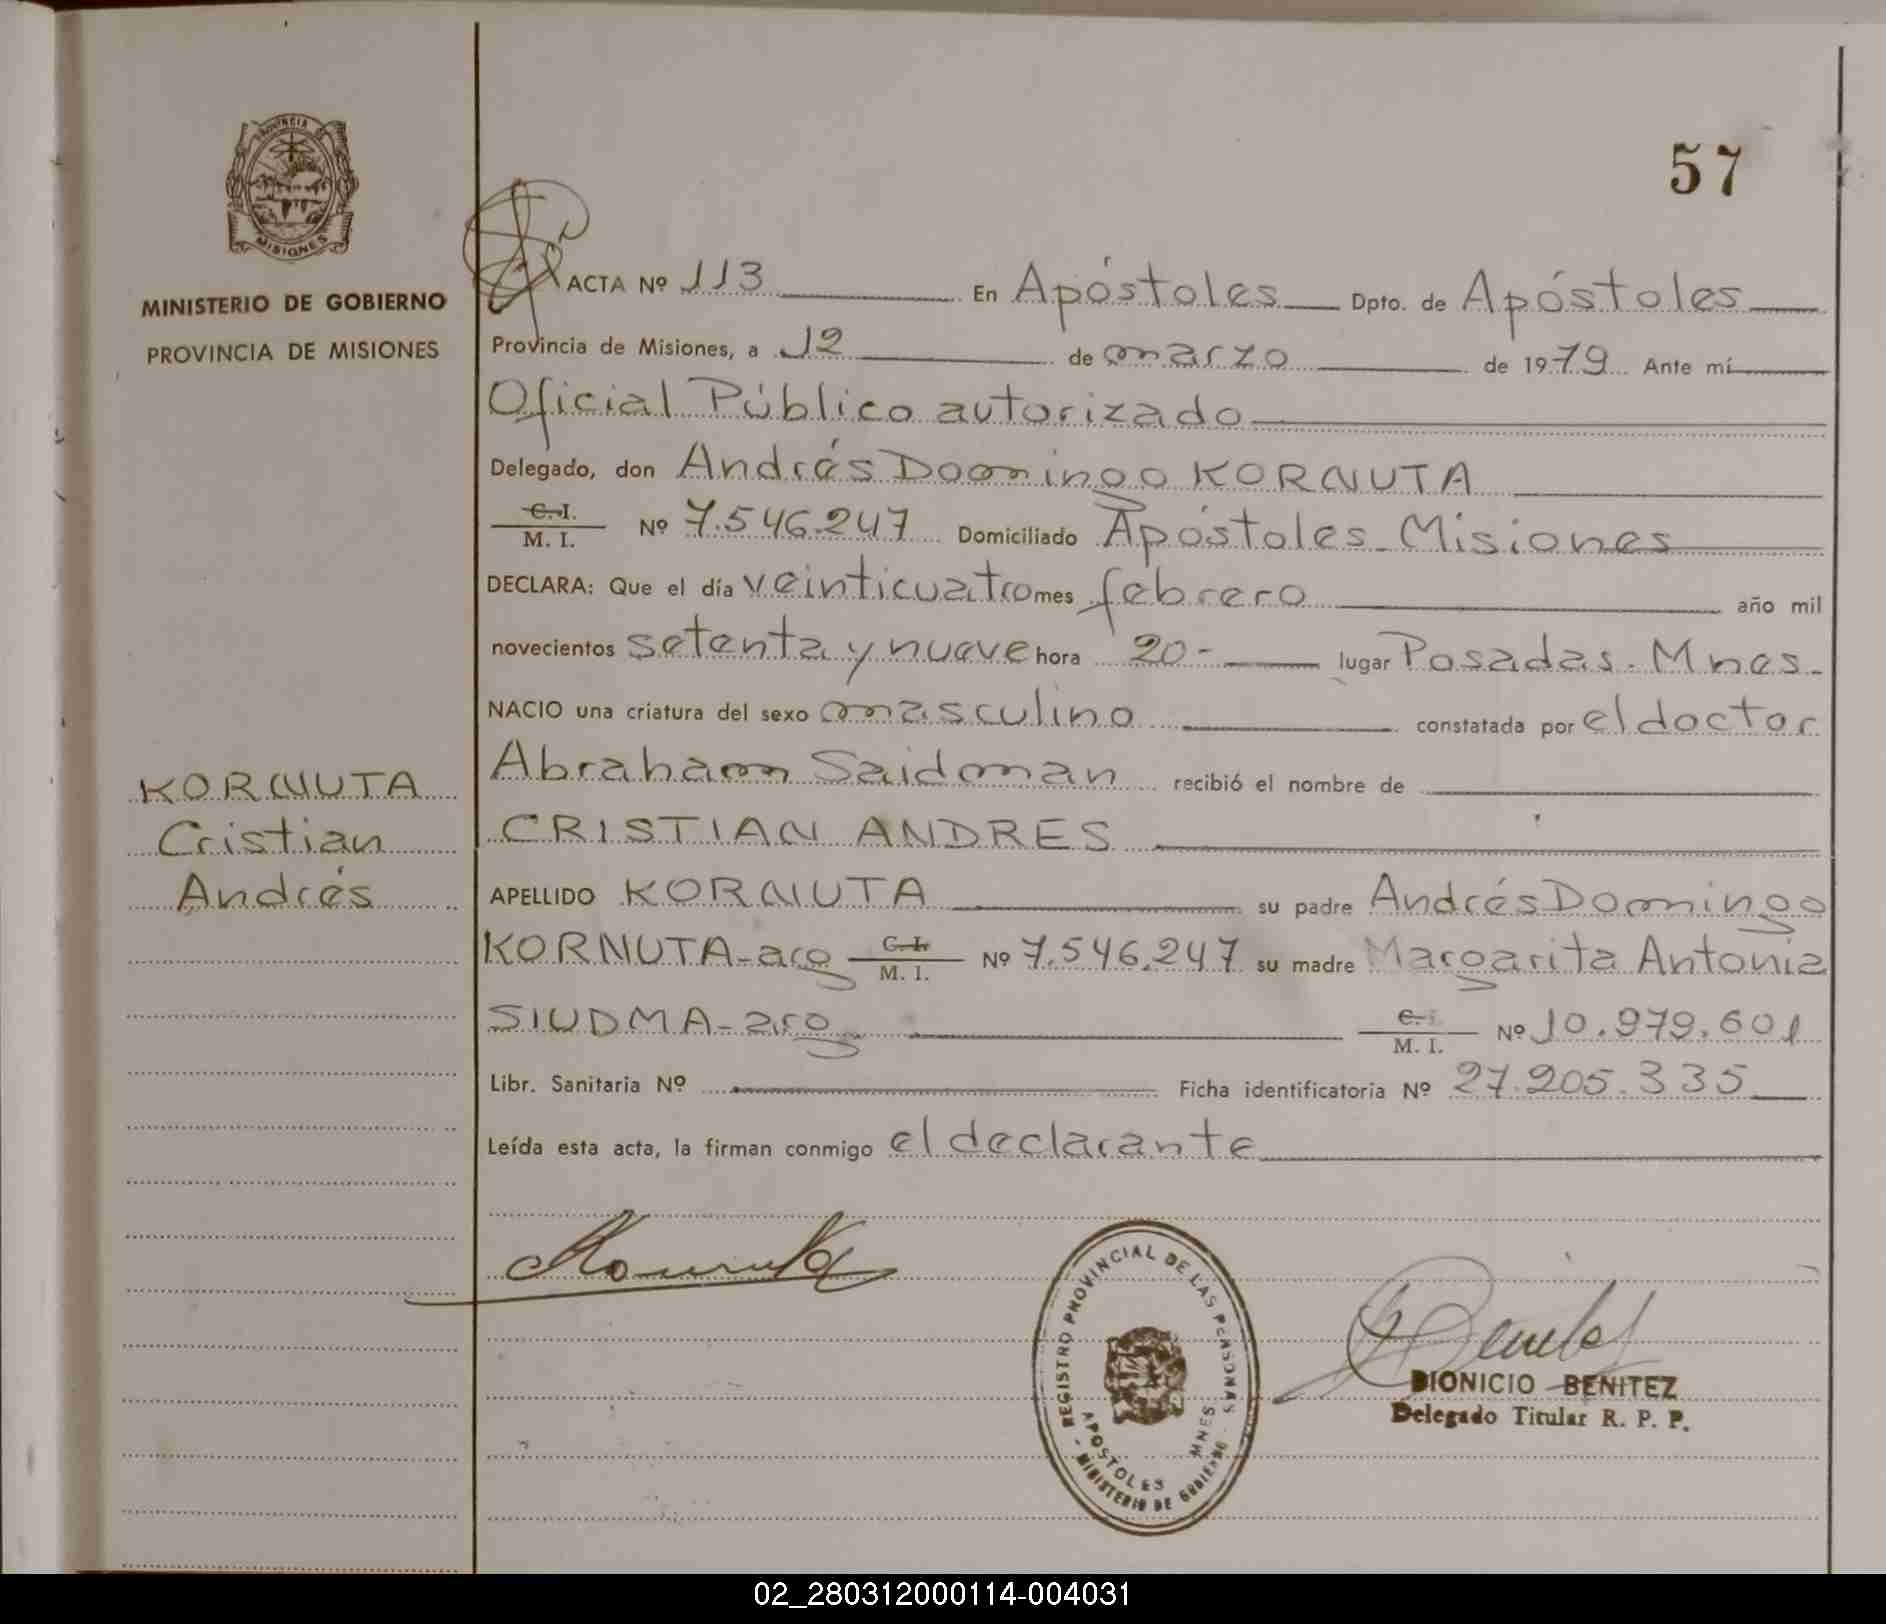 57
PROVINCIA DE
MISIONES
MINISTERIO DE GOBIERNO
PROVINCIA DE MISIONES
ACTA Nº 113 En Apóstoles Dpto. de Apóstoles
Provincia de Misiones, a 12 de marzo de 1979 Ante mí
Oficial Público autorizado
Delegado, don Andrés Domingo KORNUTA
C. I.
M. I. Nº 7.546.247 Domiciliado Apóstoles - Misiones
DECLARA: Que el día veinticuatro mes febrero año mil
novecientos setenta y nueve hora 20- lugar Posadas. Mnes-
NACIO una criatura del sexo masculino constatada por el doctor
Abraham Saidman recibió el nombre de
CRISTIAN ANDRES
KORNUTA
Cristian
Andrés
APELLIDO KORNUTA su padre Andrés Domingo
KORNUTA - arg C. I.
M. I. Nº 7.546.247 su madre Margarita Antonia
SIUDMA - arg C. I.
M. I. Nº 10.979.601
Libr. Sanitaria Nº Ficha identificatoria Nº 27.205.335
Leída esta acta, la firman conmigo el declarante
REGISTRO PROVINCIAL DE LAS PERSONAS
APOSTOLES MNES
- MINISTERIO DE GOBIERNO -
DIONICIO BENITEZ
Delegado Titular R. P. P.
02_280312000114-004031